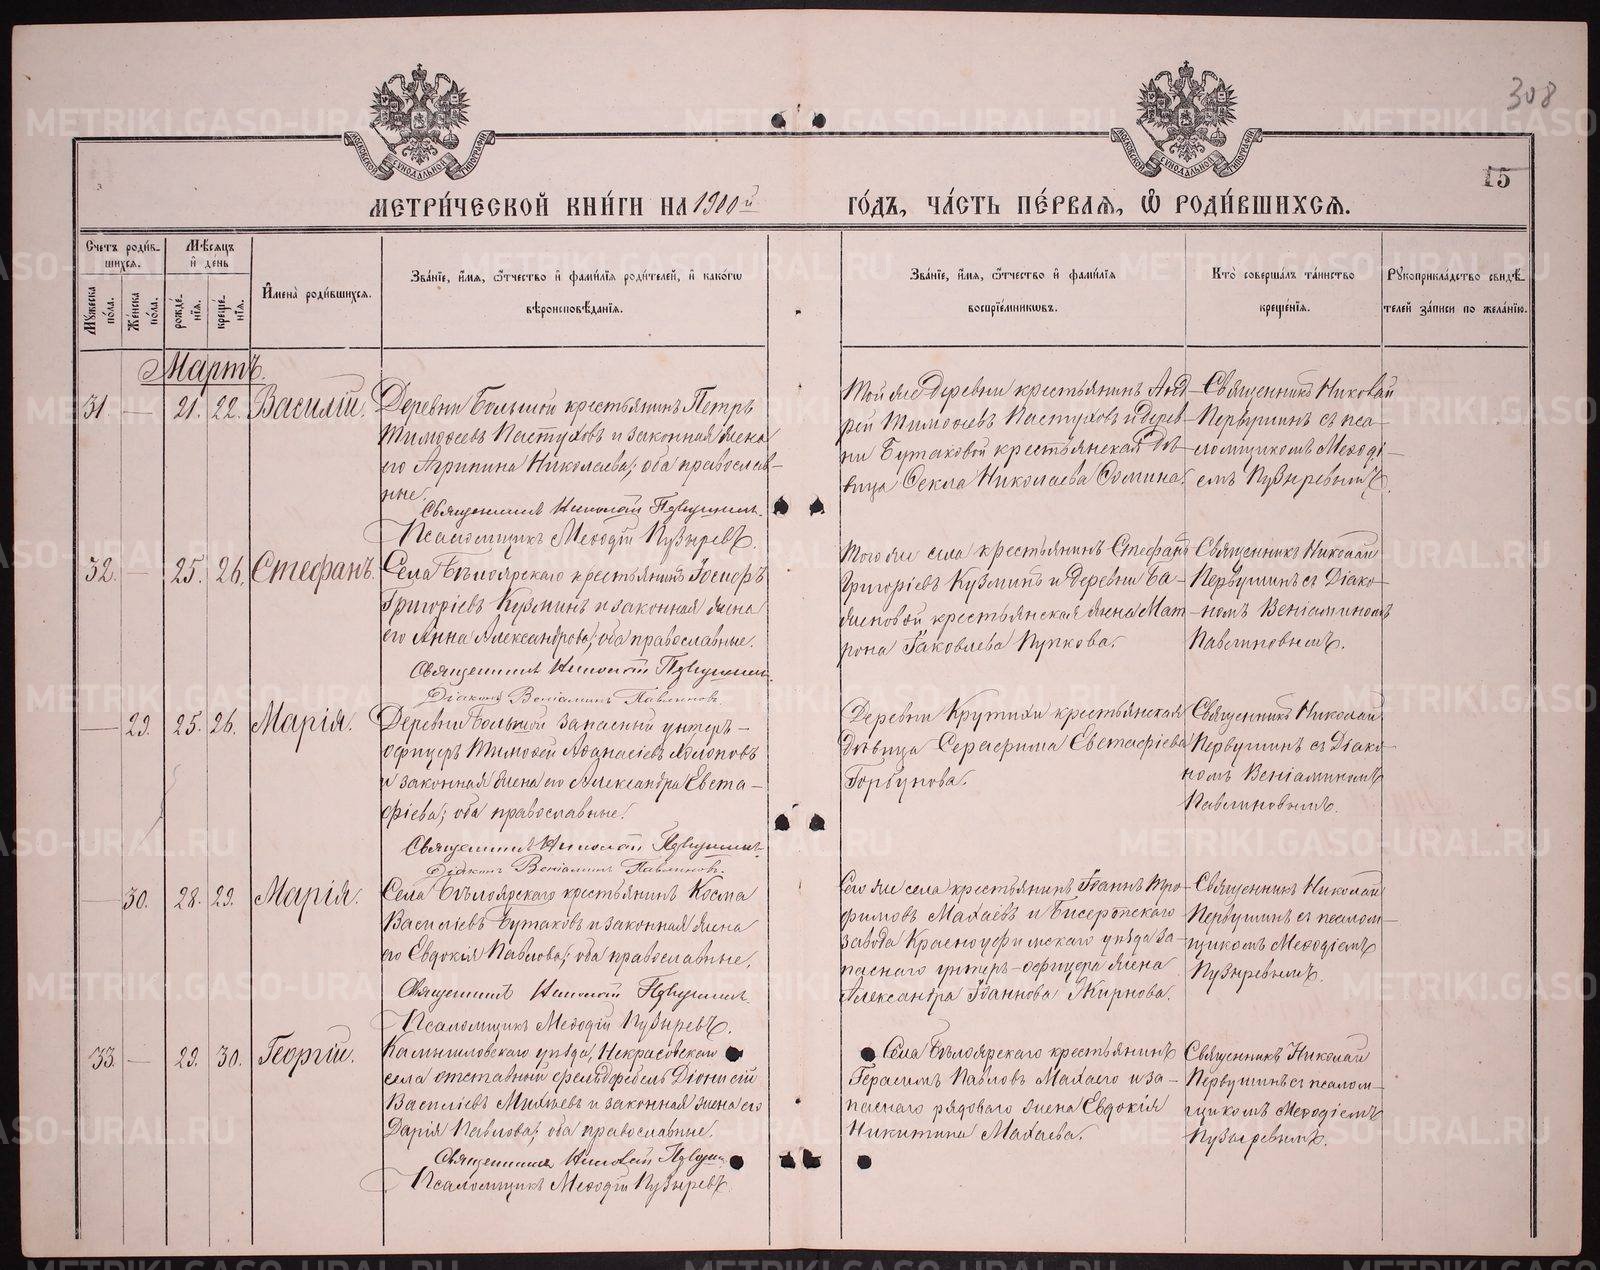 308
15
МЕТРИ́ЧЕСКОЙ КНИ́ГИ НА 1900й ГО́ДЪ, ЧА́СТЬ ПЕ́РВАЯ, Ѡ РОДИ́ВШИХСЯ.
Счетъ роди́вшихся.
Мꙋжеска по́ла.
Же́нска по́ла.
Мѣсяцъ и де́нь
рожде́нїя.
креще́нїя.
И҆мена̀ роди́вшихся.
Зва́нїе, и҆́мя, ѻ҆́тчество и҆ фами́лїя роди́телей, и҆ како́гѡ
вѣроисповѣ́данїя.
Зва́нїе, и҆́мя, ѻ҆́тчество и҆ фами́лїя
воспрїе́мникѡвъ.
Кто̀ соверша́лъ та́инство
креще́нїя.
Рꙋкоприкла́дство свидѣ́-
телей за́писи по жела́нїю.
Мартъ.
31. — 21. 22. Василій.
Деревни Большой крестьянинъ Петръ
Тимоѳеевъ Пастуховъ и законная жена
его Агрипина Николаева; оба православ-
ные.
Священникъ Николай Первушинъ.
Псаломщикъ Меѳодій Пузыревъ.
Той же деревни крестьянинъ Анд-
рей Тимоѳеевъ Пастуховъ и дерев-
ни Бутаковой крестьянская дѣ-
вица Ѳекла Николаева Ѳомина.
Священникъ Николай
Первушинъ съ пса-
ломщикомъ Меѳоді-
емъ Пузыревымъ.
32. — 25. 26. Стефанъ.
Села Бѣлоярскаго крестьянинъ Іосифъ
Григоріевъ Кузминъ и законная жена
его Анна Александрова; оба православные.
Священникъ Николай Первушинъ.
Діаконъ Веніаминъ Павлиновъ.
Того же села крестьянинъ Стефанъ
Григоріевъ Кузминъ и деревни Ба-
женовой крестьянская жена Мат-
рона Іаковлева Пупкова.
Священникъ Николай
Первушинъ съ Діако-
номъ Веніаминомъ
Павлиновымъ.
— 29. 25. 26. Марія.
Деревни Большой запасный унтеръ-
офицеръ Тимоѳей Аѳанасіевъ Холоповъ
и законная жена его Александра Евста-
фіева; оба православные.
Священникъ Николай Первушинъ.
Діаконъ Веніаминъ Павлиновъ.
Деревни Крутихи крестьянская
дѣвица Серафима Евстафіева
Горбунова.
Священникъ Николай
Первушинъ съ Діако-
номъ Веніаминомъ
Павлиновымъ.
— 30. 28. 29. Марія.
Села Бѣлоярскаго крестьянинъ Косма
Василіевъ Бутаковъ и законная жена
его Евдокія Павлова; оба православные.
Священникъ Николай Первушинъ.
Псаломщикъ Меѳодій Пузыревъ.
Сего же села крестьянинъ Іоаннъ Тро-
фимовъ Махаевъ и Бисертскаго
завода Красноуфимскаго уѣзда за-
паснаго унтеръ-офицера жена
Александра Іоаннова Жирнова.
Священникъ Николай
Первушинъ съ псалом-
щикомъ Меѳодіемъ
Пузыревымъ.
33. — 29. 30. Георгій.
Камышловскаго уѣзда, Некрасовскаго
села отставный фельдфебель Діонисій
Василіевъ Михѣевъ и законная жена его
Дарія Павлова; оба православные.
Священникъ Николай Первушинъ
Псаломщикъ Меѳодій Пузыревъ.
Села Бѣлоярскаго крестьянинъ
Герасимъ Павловъ Махаевъ и за-
паснаго рядоваго жена Евдокія
Никитина Махаева.
Священникъ Николай
Первушинъ съ псалом-
щикомъ Меѳодіемъ
Пузыревымъ.